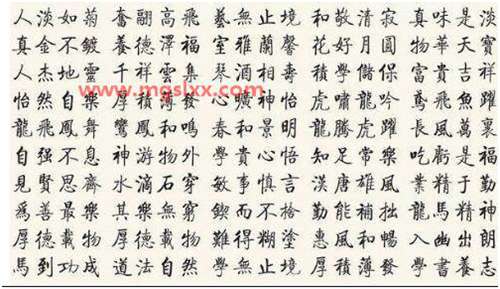 人淡如菊 奮翮高飛 藝無止境 和敬清寂 真味是淡
真金不鍍 養德澤福 室雅蘭馨 花好月圓 物華天寶
人杰地靈 千祥雲集 琴酒相壽 學儲保 富貴吉祥
www.mgslxx.com
怡然自樂 厚積薄發 心曠神怡 虎嘯龍吟 鳶飛魚躍
龍飛鳳舞 鸞鳳和鳴 春和景明 龍騰虎躍 長風萬裏
自強不息 神游物外 學貴心悟 知足常樂 吃虧是福
見賢思齊 水滴石穿 敏事慎言 漢唐雄風 業精于勤
爲善最樂 其樂無窮 鍥而不捨 勤能補拙 龍馬精神
厚德載物 厚德載物 難得糊塗 惠風和暢 入幽出朗
馬到功成 道法自然 學無止境 厚積薄發 學書養志